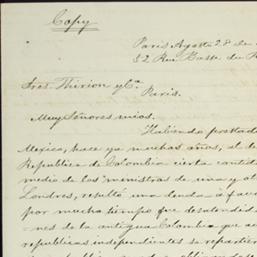 Copy
Paris Agosto 28 de
52 Rue Basse du
Sres. Thirion y Ca.
Paris.
Muy Señores mios.
Habiendo prestado
Mexico, hace ya muchos años, al
Republica de Colombia cierta cantid
medio de los ministros de una y ot
Londres, resultó una deuda á favo
por mucho tiempo fue desatendid
nes de la antigua Colombia que
republicas independientes se repartier